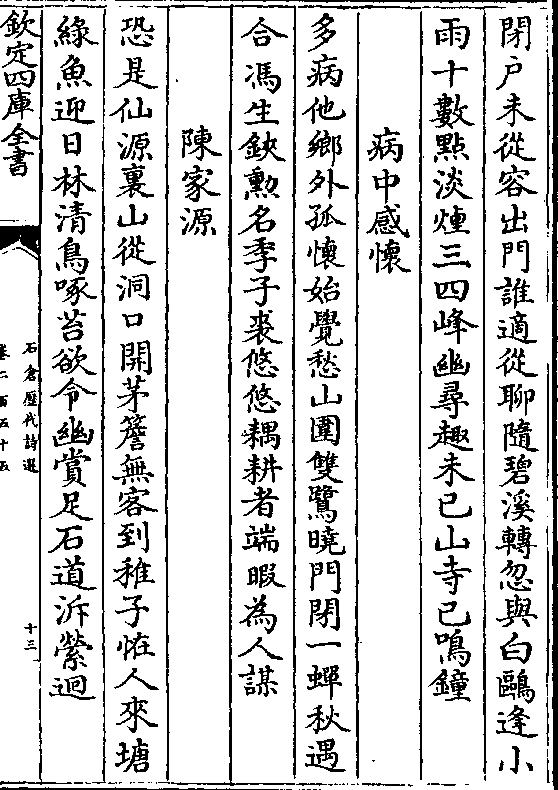 閉户未從容出門誰適從聊隨碧溪轉忽與白鷗逢小
雨十數點淡煙三四峰幽尋趣未已山寺已鳴鐘
病中感懷
多病他鄉外孤懷始覺愁山圍雙鷺曉門閉一蟬秋遇
合馮生鋏勲名季子裘悠悠耦耕者端暇為人謀
陳家源
恐是仙源裏山從洞口開茅簷無客到稚子恠人來塘
綠魚迎日林清鳥啄苔欲令幽賞足石道泝縈迴
欽定四庫全書
石倉歷代詩選
卷二百五十五
十三